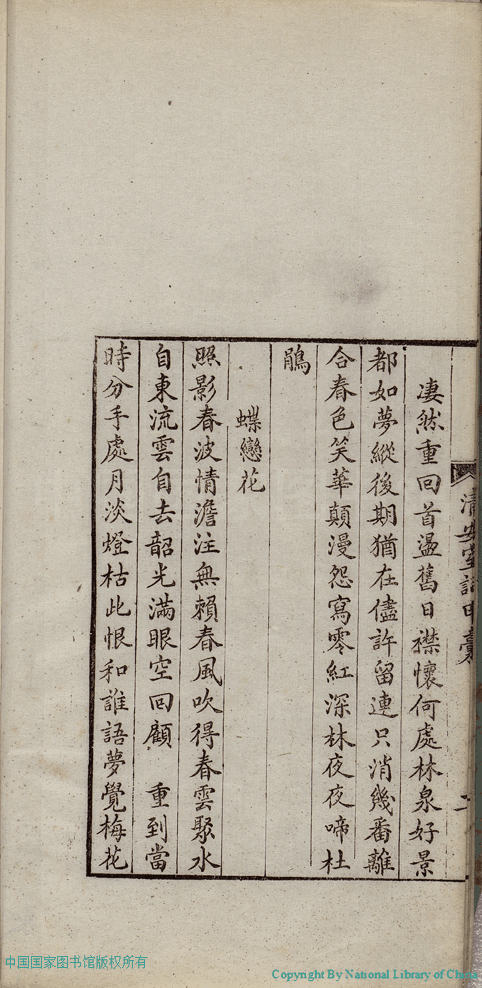 凄然重回首盪舊日襟懷何處林泉好景
都如夢縱後期猶在儘許留連只消幾番離
合春色笑華顛漫怨寫零紅深林夜夜啼杜
鵑
蝶戀花
照影春波情澹注無賴春風吹得春雲聚水
自東流雲自去韶光滿眼空回顧 重到當
時分手處月淡燈枯此恨和誰語夢覺梅花
二
中国国家图书馆版权所有
Copyright By National Library of China